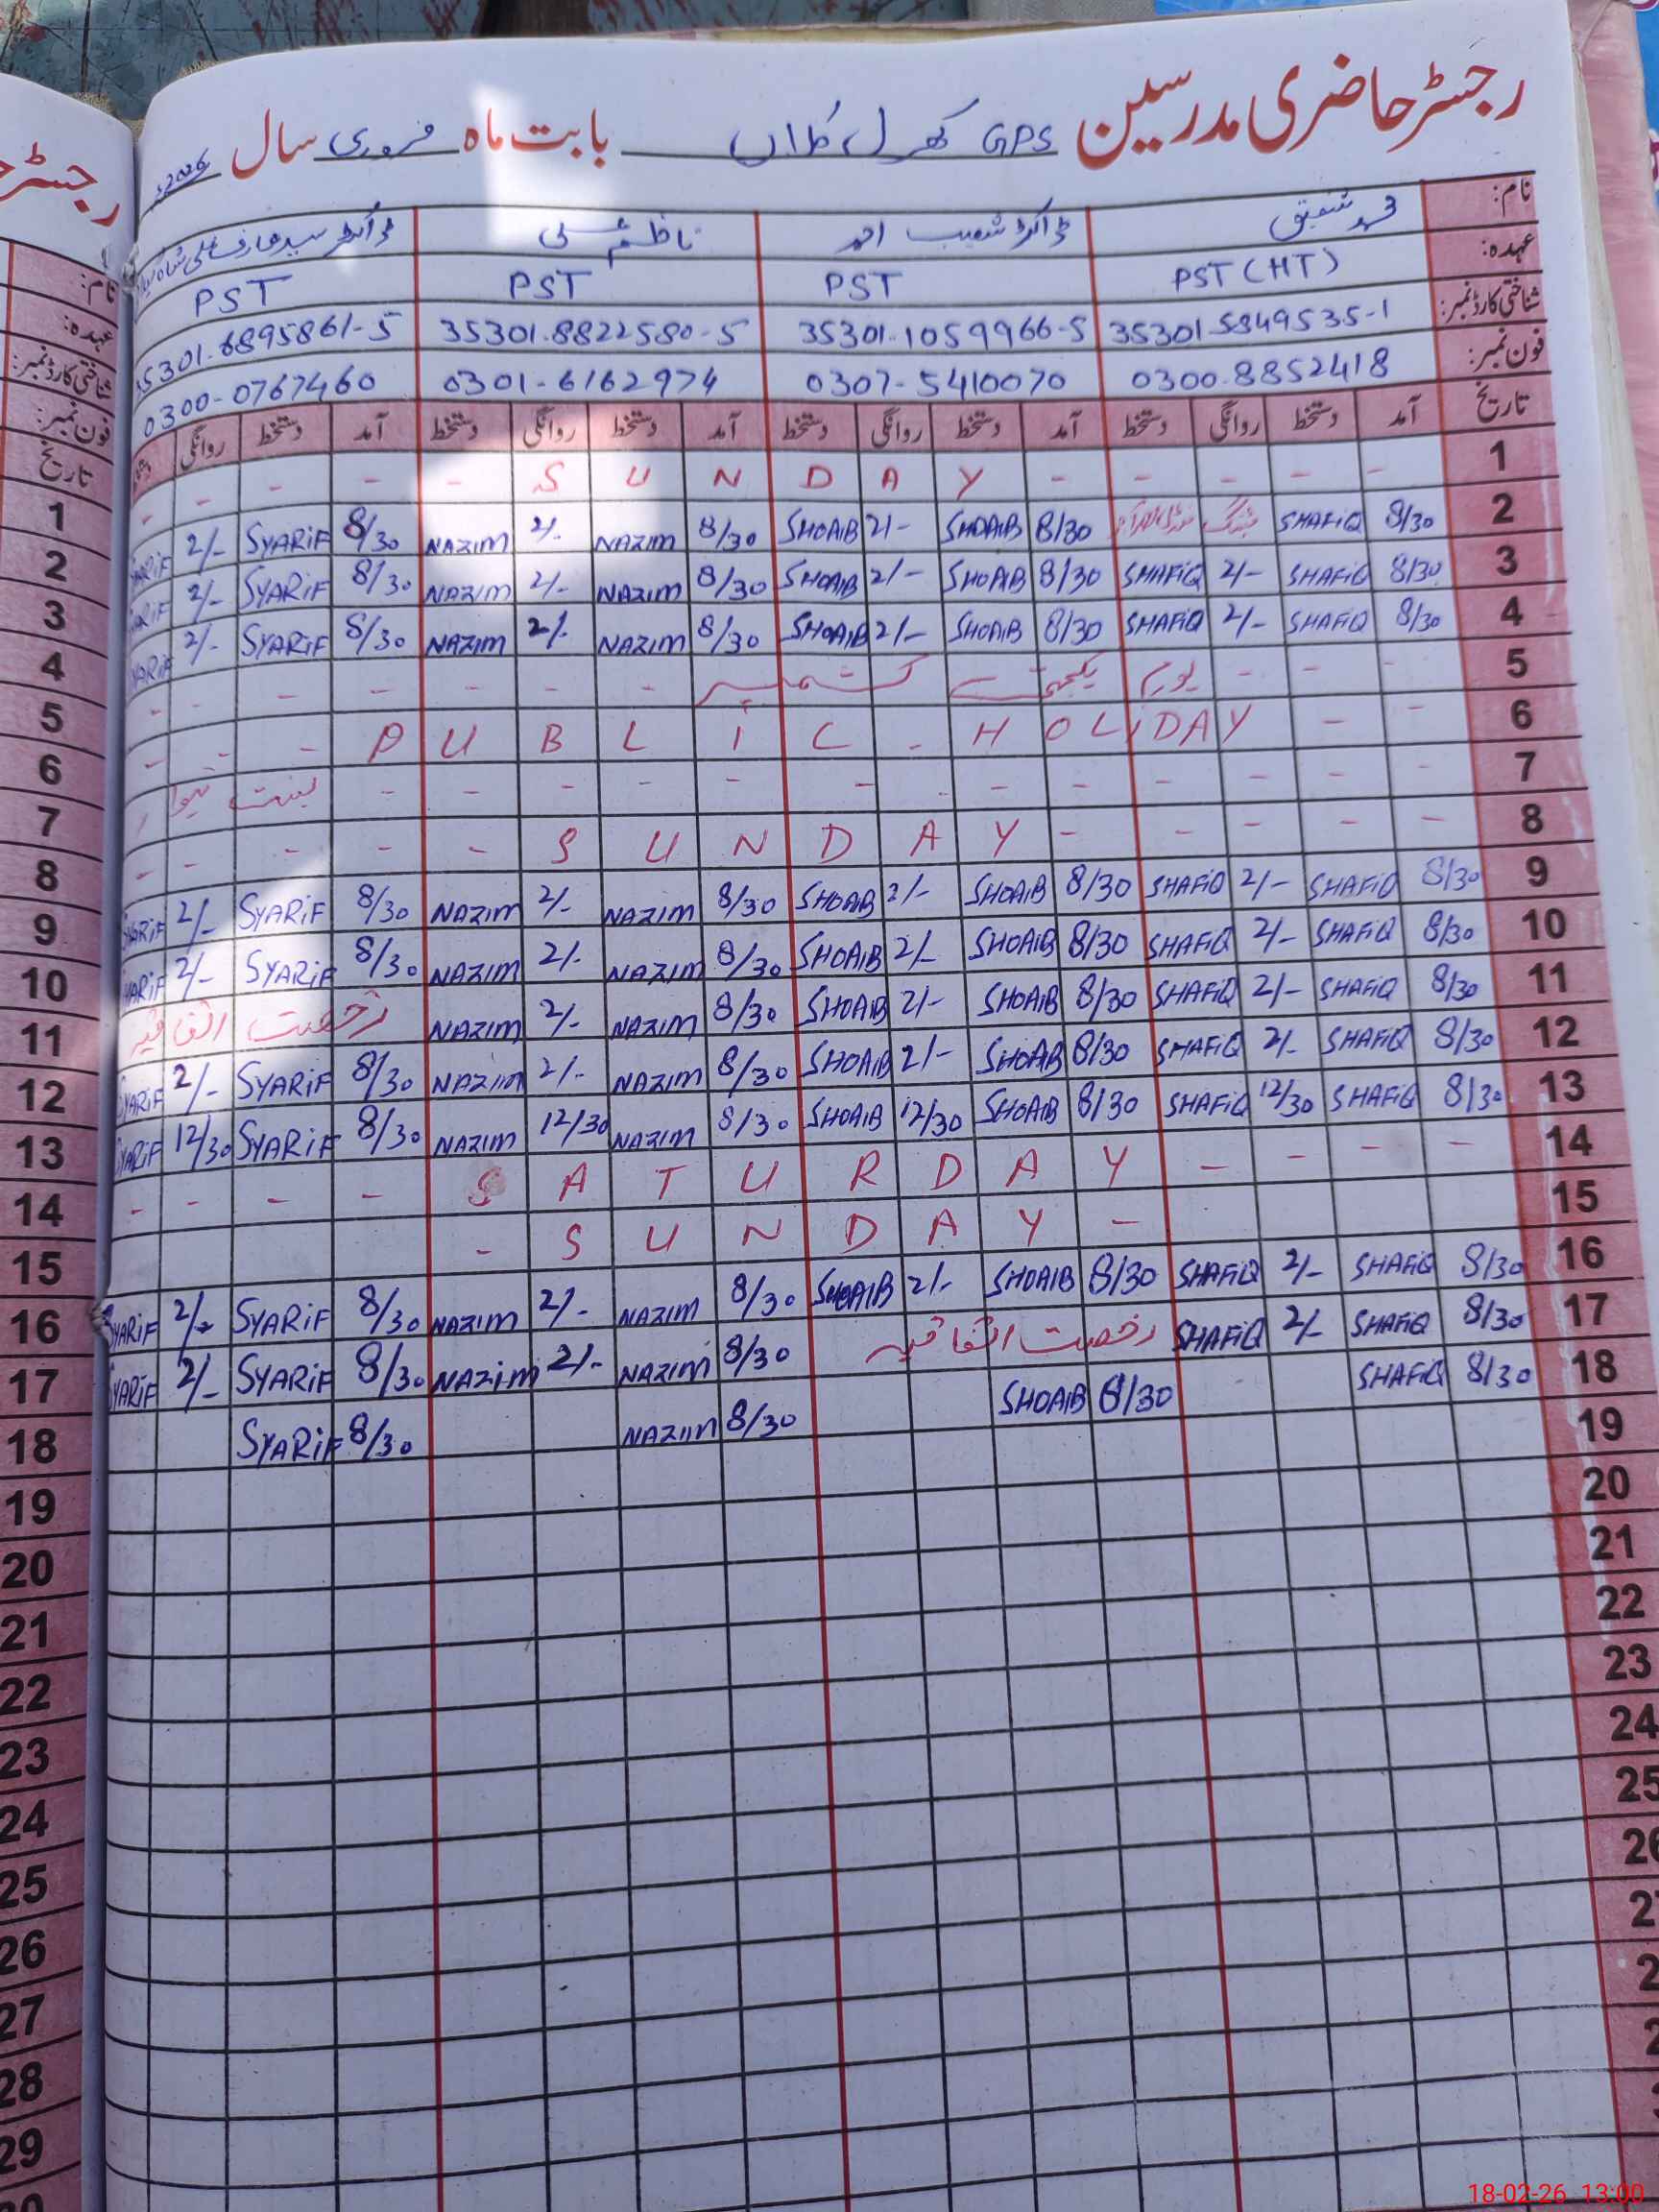 رجسٹر حاضری مدرسین GPS کھرل کلاں بابت ماہ فروری سال 2026ء
نام: محمد شفیق ڈاکٹر شعیب احمد ناظم علی ڈاکٹر سید عارف علی شاہ
عہدہ: PST (HT) PST PST PST
شناختی کارڈ نمبر: 35301-5849535-1 35301-1059966-5 35301-8822580-5 35301-6895861-5
فون نمبر: 0300-8852418 0307-5410070 0301-6162974 0300-0767460
تاریخ آمد دستخط روانگی دستخط آمد دستخط روانگی دستخط آمد دستخط روانگی دستخط آمد دستخط روانگی
1 SUNDAY
2 8/30 SHAFiQ میٹنگ 8/30 SHOAiB 2/- SHOAiB 8/30 NAZIM 2/- NAZIM 8/30 SYARiF 2/- SYARiF
3 8/30 SHAFiQ 2/- SHAFiQ 8/30 SHOAiB 2/- SHOAiB 8/30 NAZIM 2/- NAZIM 8/30 SYARiF 2/- SYARiF
4 8/30 SHAFiQ 2/- SHAFiQ 8/30 SHOAiB 2/- SHOAiB 8/30 NAZIM 2/- NAZIM 8/30 SYARiF 2/- SYARiF
5 یوم یکجہتی کشمیر
6 PUBLiC - HOLiDAY
7 بسنت
8 SUNDAY
9 8/30 SHAFiQ 2/- SHAFiQ 8/30 SHOAiB 2/- SHOAiB 8/30 NAZIM 2/- NAZIM 8/30 SYARiF 2/- SYARiF
10 8/30 SHAFiQ 2/- SHAFiQ 8/30 SHOAiB 2/- SHOAiB 8/30 NAZIM 2/- NAZIM 8/30 SYARiF 2/- SYARiF
11 8/30 SHAFiQ 2/- SHAFiQ 8/30 SHOAiB 2/- SHOAiB 8/30 NAZIM 2/- NAZIM رخصت اتفاقیہ
12 8/30 SHAFiQ 2/- SHAFiQ 8/30 SHOAiB 2/- SHOAiB 8/30 NAZIM 2/- NAZIM 8/30 SYARiF 2/- SYARiF
13 8/30 SHAFiQ 12/30 SHAFiQ 8/30 SHOAiB 12/30 SHOAiB 8/30 NAZIM 12/30 NAZIM 8/30 SYARiF 12/30 SYARiF
14 SATURDAY
15 SUNDAY
16 8/30 SHAFiQ 2/- SHAFiQ 8/30 SHOAIB 2/- SHOAIB 8/30 NAZIM 2/- NAZIM 8/30 SYARiF 2/- SYARiF
17 8/30 SHAFiQ 2/- SHAFiQ رخصت اتفاقیہ 8/30 NAZIM 2/- NAZiM 8/30 SYARiF 2/- SYARiF
18 8/30 SHAFiQ 8/30 SHOAiB 8/30 NAZIM 8/30 SYARiF
19
20
21
22
23
24
25
26
رجسٹر
نام:
عہدہ:
شناختی کارڈ نمبر:
فون نمبر:
تاریخ
1
2
3
4
5
6
7
8
9
10
11
12
13
14
15
16
17
18
19
20
21
22
23
24
25
26
27
28
29
18-02-26 13:00